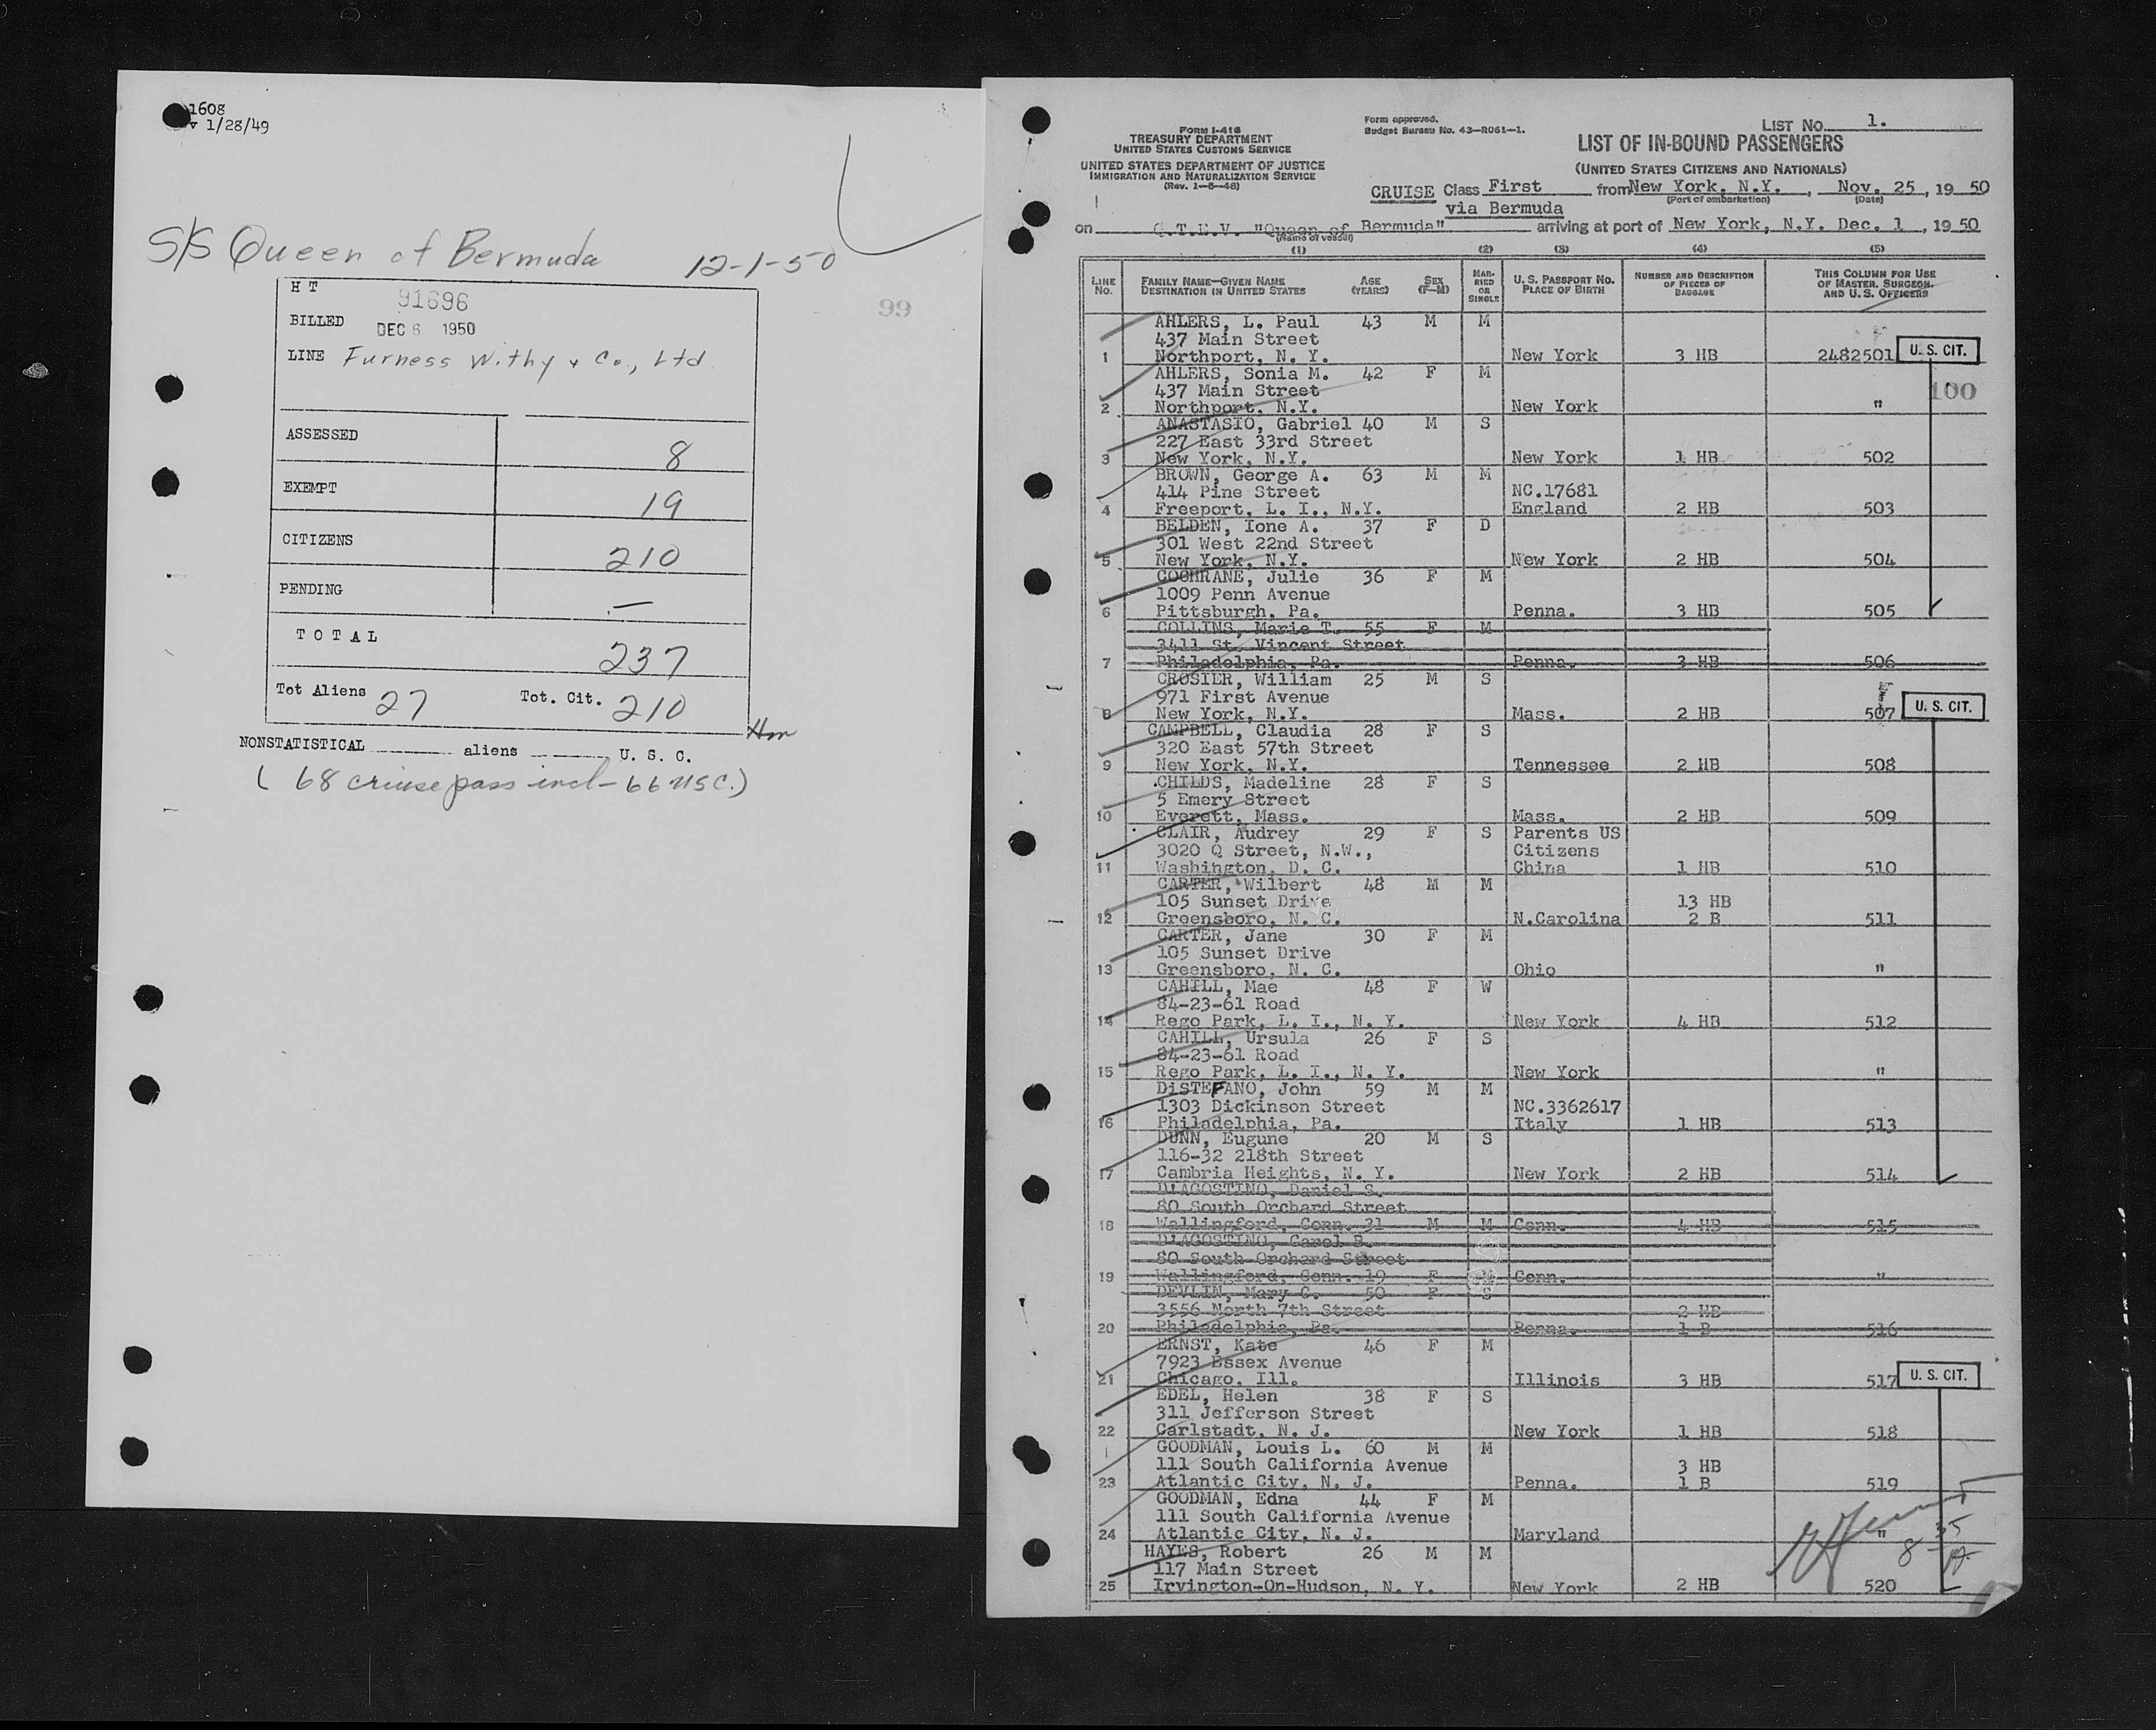 1608
v 1/28/49
S/S Queen of Bermuda 12-1-50
H T 91696
BILLED DEC 6 1950
LINE Furness Withy & Co., Ltd
99
ASSESSED 8
EXEMPT 19
CITIZENS 210
PENDING —
TOTAL 237
Tot Aliens 27 Tot. Cit. 210
NONSTATISTICAL aliens U. S. C.
( 68 cruise pass incl - 66 USC.)
Form I-416
TREASURY DEPARTMENT
UNITED STATES CUSTOMS SERVICE
UNITED STATES DEPARTMENT OF JUSTICE
IMMIGRATION AND NATURALIZATION SERVICE
(Rev. 1-5-48)
Form approved.
Budget Bureau No. 43-R061-1.
LIST No. 1.
LIST OF IN-BOUND PASSENGERS
(UNITED STATES CITIZENS AND NATIONALS)
CRUISE Class First from New York, N.Y., Nov. 25, 19 50
(Port of embarkation) (Date)
via Bermuda
on Q.T.E.V. "Queen of Bermuda" arriving at port of New York, N.Y. Dec. 1, 19 50
(Name of vessel)
(1) (2) (3) (4) (5)
LINE No. FAMILY NAME—GIVEN NAME DESTINATION IN UNITED STATES AGE (YEARS) SEX (F-M) MARRIED OR SINGLE U. S. PASSPORT NO. PLACE OF BIRTH NUMBER AND DESCRIPTION OF PIECES OF BAGGAGE THIS COLUMN FOR USE OF MASTER, SURGEON, AND U. S. OFFICERS
AHLERS, L. Paul 43 M M
437 Main Street
1 Northport, N. Y. New York 3 HB 2482501 U. S. CIT.
AHLERS, Sonia M. 42 F M
437 Main Street 100
2 Northport, N.Y. New York "
ANASTASIO, Gabriel 40 M S
227 East 33rd Street
3 New York, N.Y. New York 1 HB 502
BROWN, George A. 63 M M
414 Pine Street NC.17681
4 Freeport, L. I., N.Y. England 2 HB 503
BELDEN, Ione A. 37 F D
301 West 22nd Street
5 New York, N.Y. New York 2 HB 504
COCHRANE, Julie 36 F M
1009 Penn Avenue
6 Pittsburgh, Pa. Penna. 3 HB 505
COLLINS, Marie T. 55 F M
3411 St. Vincent Street
7 Philadelphia, Pa. Penna. 3 HB 506
CROSIER, William 25 M S
971 First Avenue
8 New York, N.Y. Mass. 2 HB 507 U. S. CIT.
CAMPBELL, Claudia 28 F S
320 East 57th Street
9 New York, N.Y. Tennessee 2 HB 508
CHILDS, Madeline 28 F S
5 Emery Street
10 Everett, Mass. Mass. 2 HB 509
CLAIR, Audrey 29 F S Parents US
3020 Q Street, N.W., Citizens
11 Washington, D. C. China 1 HB 510
CARTER, Wilbert 48 M M
105 Sunset Drive 13 HB
12 Greensboro, N. C. N.Carolina 2 B 511
CARTER, Jane 30 F M
105 Sunset Drive
13 Greensboro, N. C. Ohio "
CAHILL, Mae 48 F W
84-23-61 Road
14 Rego Park, L. I., N. Y. New York 4 HB 512
CAHILL, Ursula 26 F S
84-23-61 Road
15 Rego Park, L. I., N. Y. New York "
DiSTEFANO, John 59 M M
1303 Dickinson Street NC.3362617
16 Philadelphia, Pa. Italy 1 HB 513
DUNN, Eugune 20 M S
116-32 218th Street
17 Cambria Heights, N. Y. New York 2 HB 514
D'AGOSTINO, Daniel S.
80 South Orchard Street
18 Wallingford, Conn. 31 M M Conn. 4 HB 515
D'AGOSTINO, Carol B.
80 South Orchard Street
19 Wallingford, Conn. 19 F M Conn. "
DEVLIN, Mary C. 50 F S
3556 North 7th Street 2 HB
20 Philadelphia, Pa. Penna. 1 B 516
ERNST, Kate 46 F M
7923 Essex Avenue
21 Chicago, Ill. Illinois 3 HB 517 U. S. CIT.
EDEL, Helen 38 F S
311 Jefferson Street
22 Carlstadt, N. J. New York 1 HB 518
GOODMAN, Louis L. 60 M M
111 South California Avenue 3 HB
23 Atlantic City, N. J. Penna. 1 B 519
GOODMAN, Edna 44 F M
111 South California Avenue
24 Atlantic City, N. J. Maryland "
HAYES, Robert 26 M M
117 Main Street
25 Irvington-On-Hudson, N. Y. New York 2 HB 520